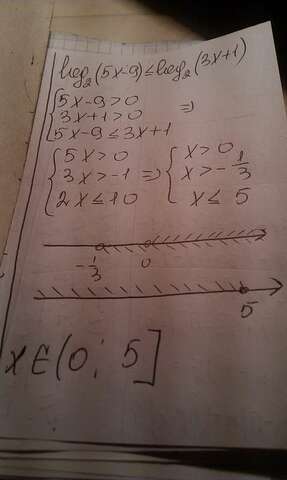 log₂(5x-9) ≤ log₂(3x+1)
{ 5x-9>0
{ 3x+1>0 ⇒
{ 5x-9≤3x+1
{ 5x>0 { x>0
{ 3x>-1 ⇒ { x>-1/3
{ 2x≤10 { x≤5
-1/3 0
5
x∈(0; 5]